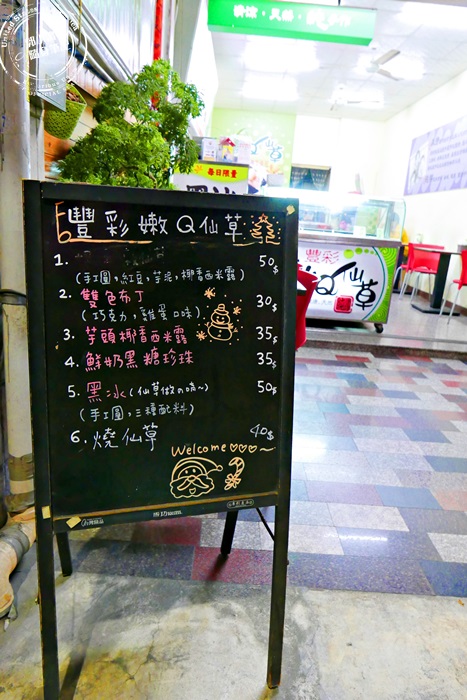 每日限量
豐彩嫩Q仙草
1. 50$
(手工圓,紅豆,芋泥,椰香西米露)
2. 雙色布丁 30$
(巧克力,雞蛋口味)
3. 芋頭椰香西米露 35$
4. 鮮奶黑糖珍珠 35$
5. 黑冰(仙草做の唷~) 50$
(手工圓,三種配料)
6. 燒仙草 40$
Welcome♡♡♡~
豐彩
Q仙草